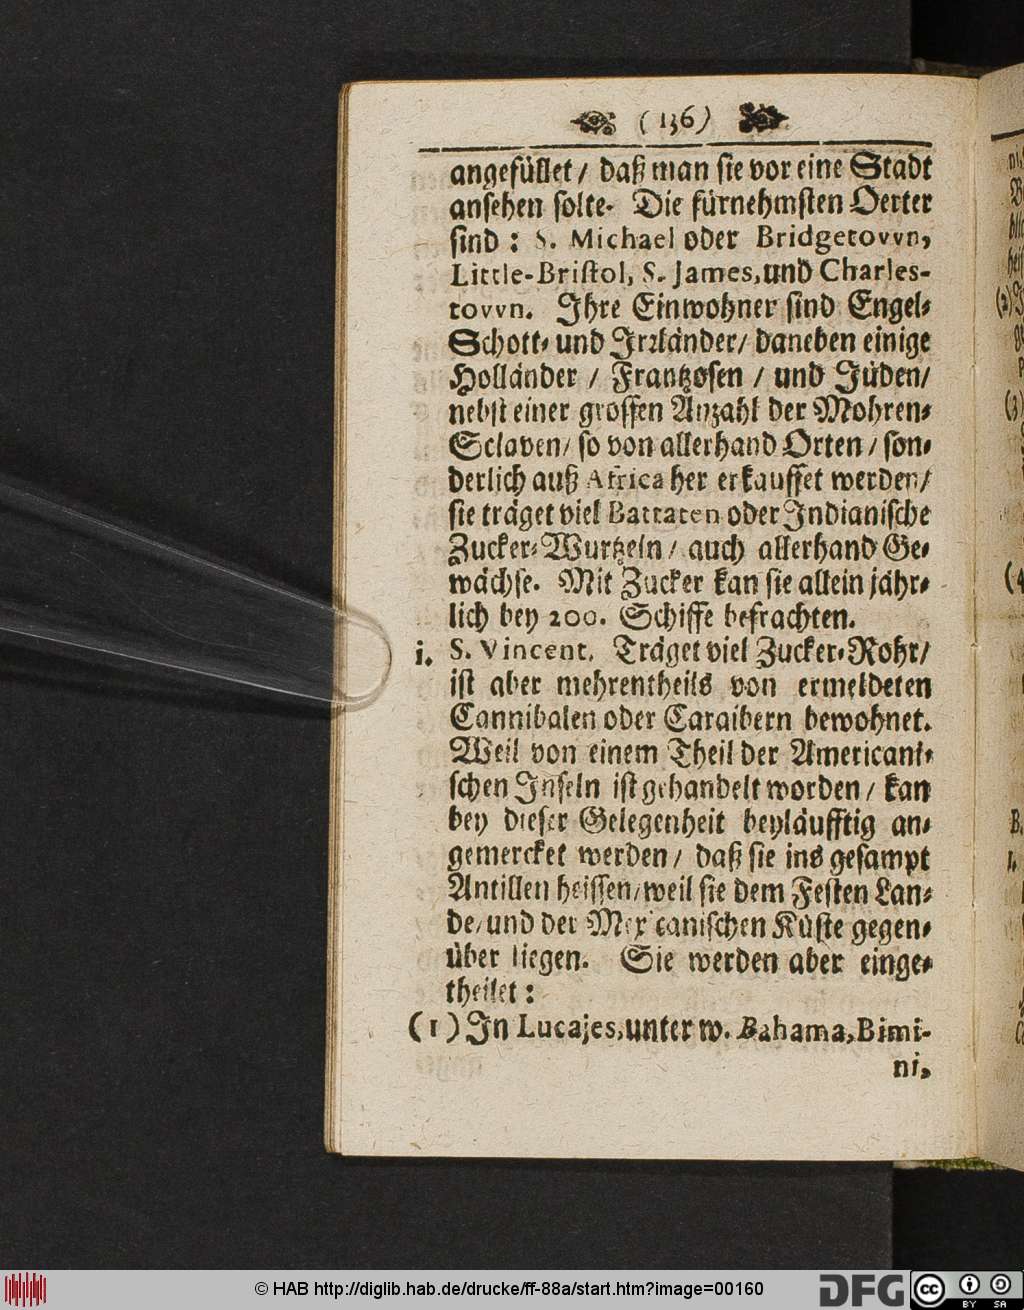 (136)
angefüllet / daß man sie vor eine Stadt
ansehen solte. Die fürnehmsten Oerter
sind: S. Michael oder Bridgetovvn,
Little-Bristol, S. James, und Charles-
tovvn. Ihre Einwohner sind Engel-
Schott- und Irrländer/ daneben einige
Holländer / Frantzosen / und Jüden/
nebst einer grossen Anzahl der Mohren-
Sclaven/ so von allerhand Orten / son-
derlich auß Africa her erkauffet werden/
sie träget viel Battaten oder Indianische
Zucker-Wurtzeln / auch allerhand Ge-
wächse. Mit Zucker kan sie allein jähr-
lich bey 200. Schiffe befrachten.
i. S. Vincent. Träget viel Zucker-Rohr/
ist aber mehrentheils von ermeldeten
Cannibalen oder Caraibern bewohnet.
Weil von einem Theil der Americani-
schen Inseln ist gehandelt worden / kan
bey dieser Gelegenheit beyläufftig an-
gemercket werden / daß sie ins gesampt
Antillen heissen/ weil sie dem Festen Lan-
de/ und der Mexicanischen Küste gegen-
über liegen. Sie werden aber einge-
theilet:
(1) In Lucajes, unter w. Bahama, Bimi-
ni,
© HAB http://diglib.hab.de/drucke/ff-88a/start.htm?image=00160
DFG
cc
BY SA